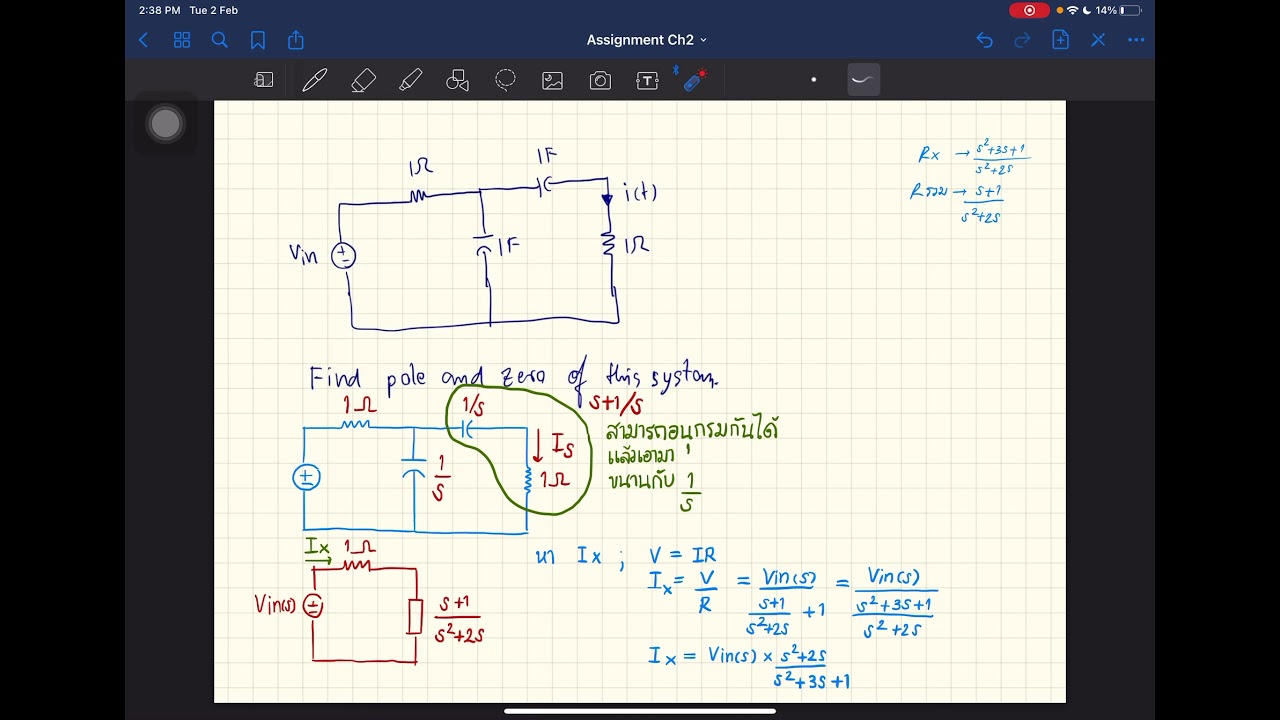 2:38 PM Tue 2 Feb
14%
Assignment Ch2
1Ω
1F
i(t)
Vin
1F
1Ω
Rx → s²+3s+1/s²+2s
Rรวม → s+1/s²+2s
Find pole and zero of this system.
1Ω
1/s
s+1/s
สามารถอนุกรมกันได้
แล้วเอามา
ขนานกับ 1/s
1/s
Is
1Ω
Ix
1Ω
Vin(s)
s+1/s²+2s
หา Ix ; V = IR
Ix = V/R = Vin(s)/(s+1/s²+2s + 1) = Vin(s)/(s²+3s+1/s²+2s)
Ix = Vin(s) × s²+2s/s²+3s+1